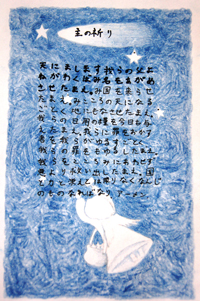 主の祈り
天にまします我らの父よ
ねがわくはみ名をあがめ
させたまえ。み国を来らせ
たまえ。みこころの天になる
ごとく地にもなさせたまえ。
我らの日用の糧を今日も与
えたまえ。我らに罪をおかす
者を我らがゆるすごとく
我らの罪をもゆるしたまえ。
我らをこころみにあわせず
悪より救い出したまえ。国
と力と栄えとは限りなくなんじ
のものなればなり アーメン